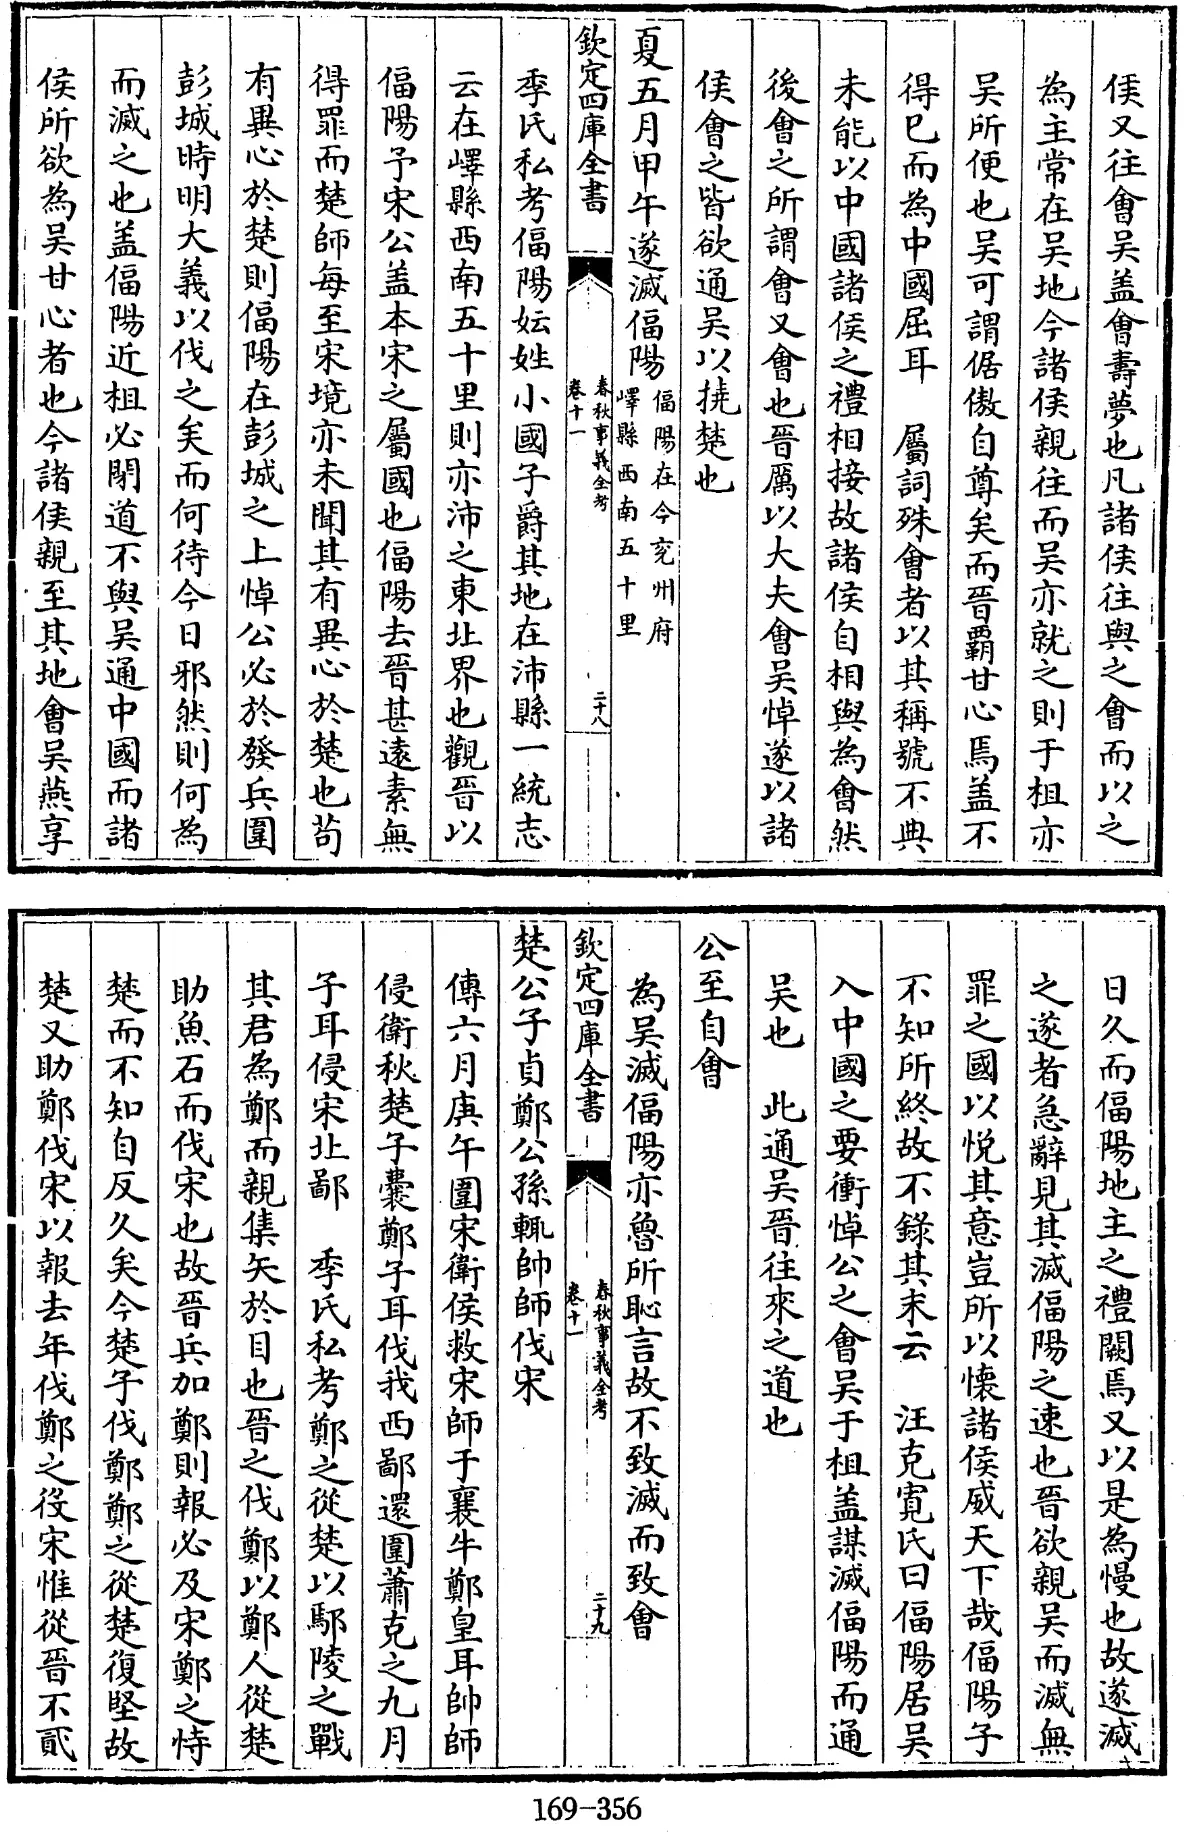 侯又往會吳盖會壽夢也凡諸侯往與之會而以之
為主常在吳地今諸侯親往而吳亦就之則于柤亦
吳所便也吳可謂倨傲自尊矣而晉霸甘心焉盖不
得已而為中國屈耳　屬詞殊會者以其稱號不典
未能以中國諸侯之禮相接故諸侯自相與為會然
後會之所謂會又會也晉厲以大夫會吳悼遂以諸
侯會之皆欲通吳以撓楚也
夏五月甲午遂滅偪陽
偪陽在今兖州府
嶧縣西南五十里
欽定四庫全書
春秋事義全考
卷十一
二十八
季氏私考偪陽妘姓小國子爵其地在沛縣一統志
云在嶧縣西南五十里則亦沛之東北界也觀晉以
偪陽予宋公盖本宋之屬國也偪陽去晉甚遠素無
得罪而楚師每至宋境亦未聞其有異心於楚也苟
有異心於楚則偪陽在彭城之上悼公必於發兵圍
彭城時明大義以伐之矣而何待今日邪然則何為
而滅之也盖偪陽近柤必閉道不與吳通中國而諸
侯所欲為吳甘心者也今諸侯親至其地會吳燕享
日久而偪陽地主之禮闕焉又以是為慢也故遂滅
之遂者急辭見其滅偪陽之速也晉欲親吳而滅無
罪之國以悅其意豈所以懷諸侯威天下哉偪陽子
不知所終故不錄其末云　汪克寛氏曰偪陽居吳
入中國之要衝悼公之會吳于柤盖謀滅偪陽而通
吳也　此通吳晉往來之道也
公至自會
為吳滅偪陽亦魯所恥言故不致滅而致會
欽定四庫全書
春秋事義全考
卷十一
二十九
楚公子貞鄭公孫輒帥師伐宋
傳六月庚午圍宋衛侯救宋師于襄牛鄭皇耳帥師
侵衛秋楚子囊鄭子耳伐我西鄙還圍蕭克之九月
子耳侵宋北鄙　季氏私考鄭之從楚以鄢陵之戰
其君為鄭而親集矢於目也晉之伐鄭以鄭人從楚
助魚石而伐宋也故晉兵加鄭則報必及宋鄭之恃
楚而不知自反久矣今楚子伐鄭鄭之從楚復堅故
楚又助鄭伐宋以報去年伐鄭之役宋惟從晉不貳
169-356